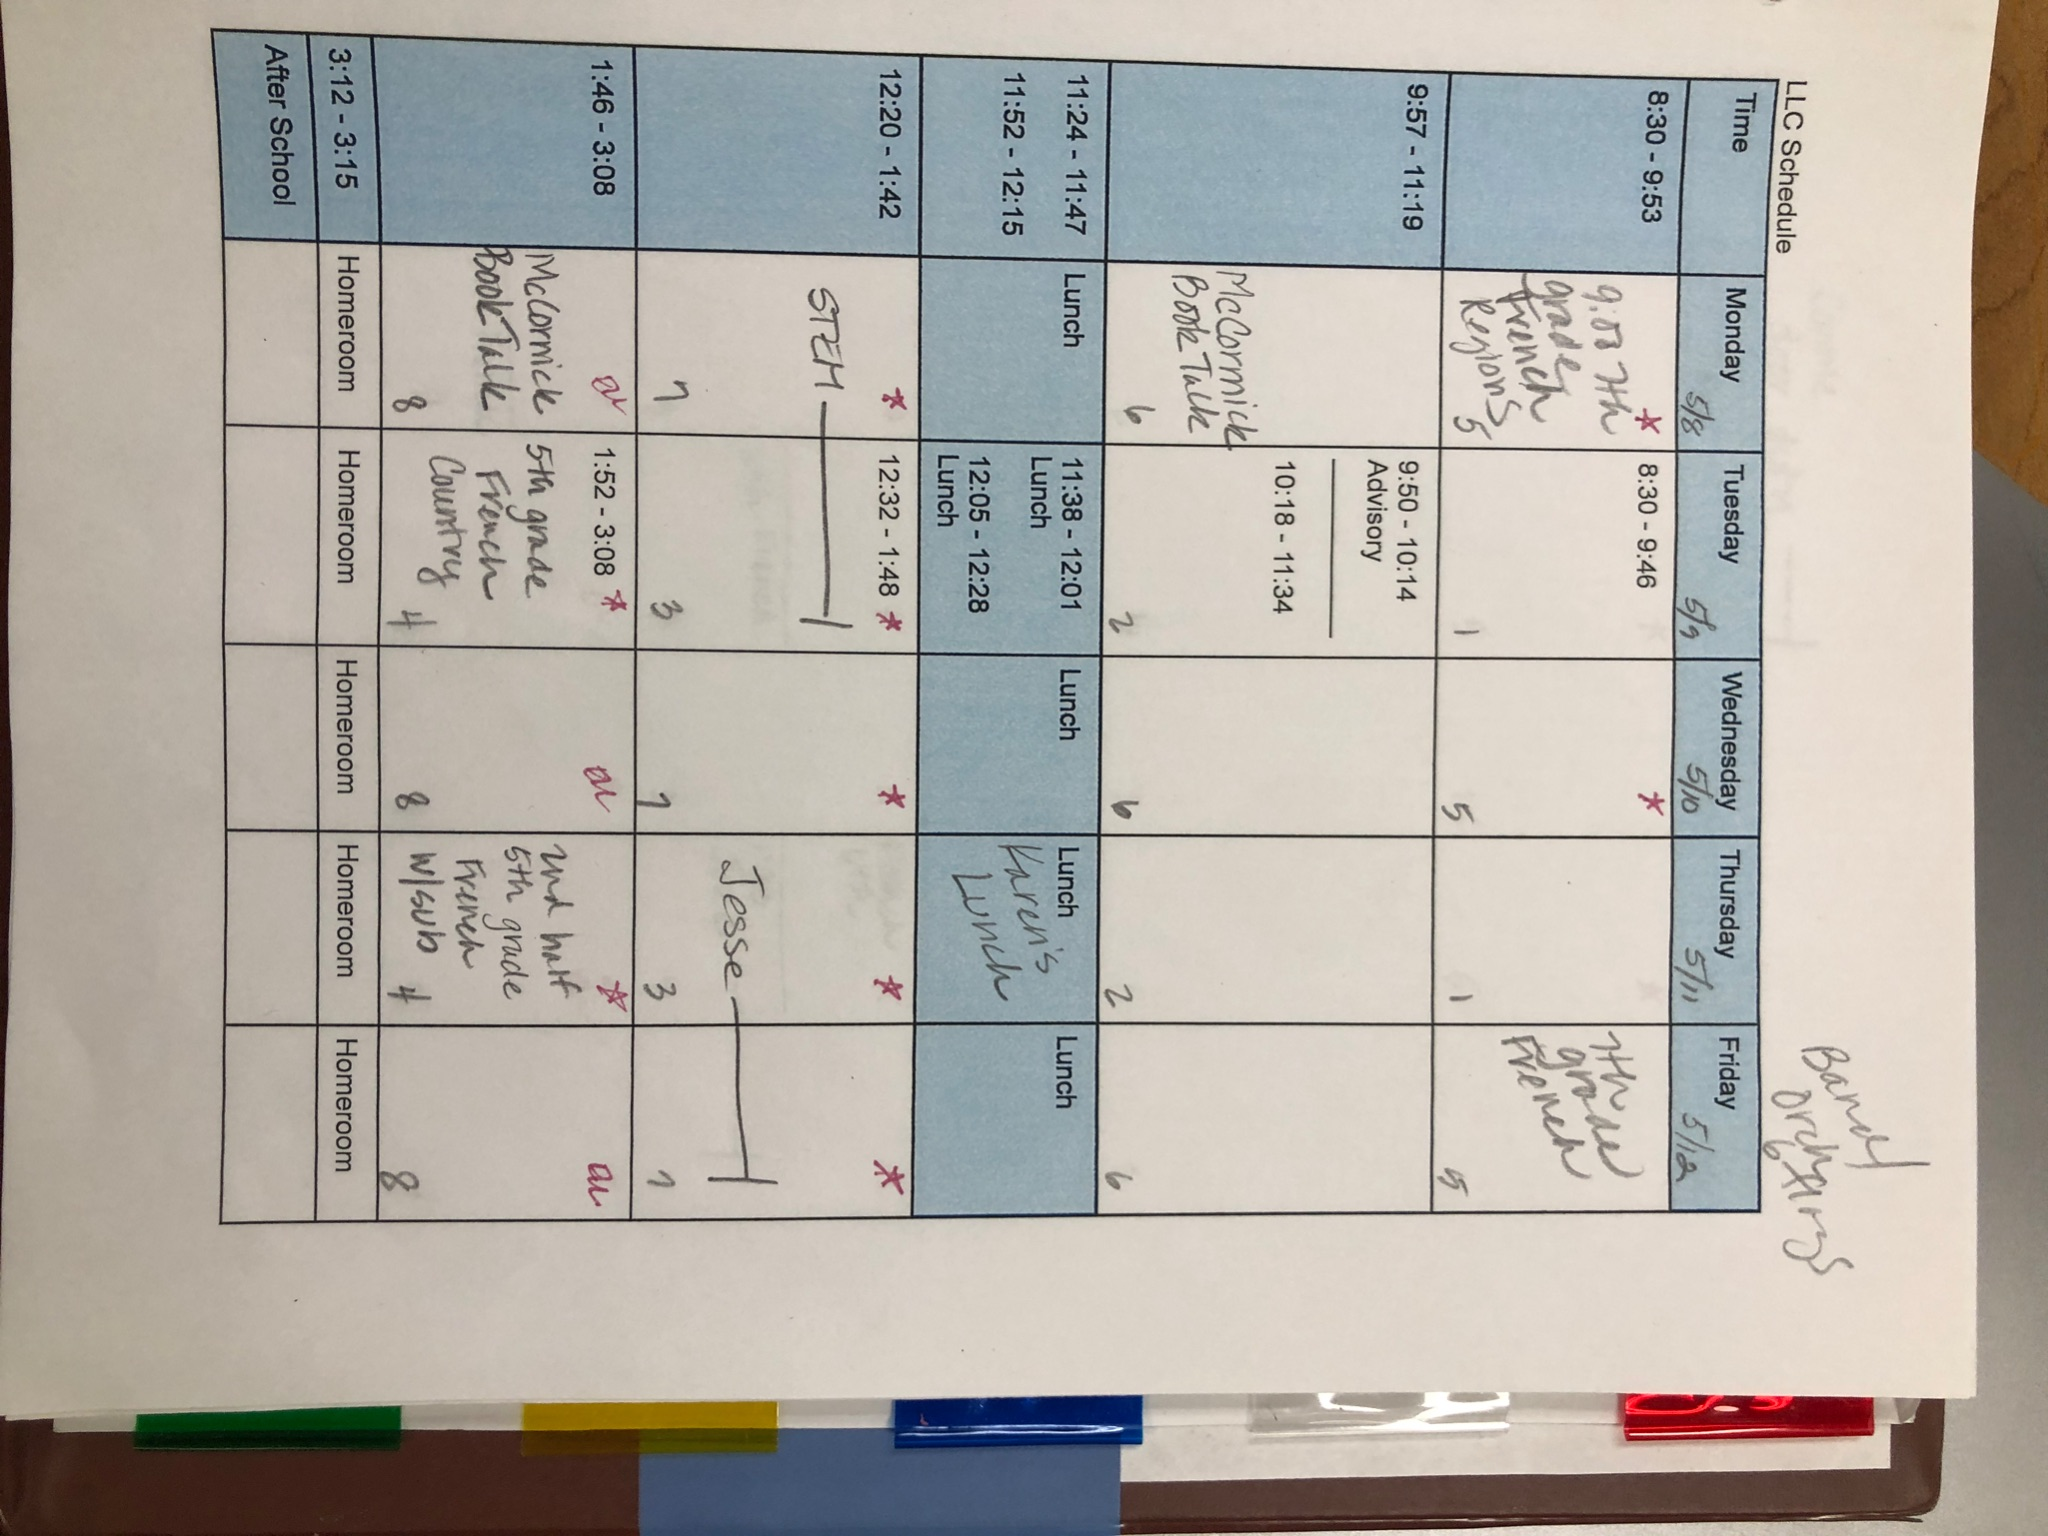 LLC Schedule
Band
Orch
6
Time
Monday 5/8
Tuesday 5/9
Wednesday 5/10
Thursday 5/11
Friday 5/12
8:30 - 9:53
*
9:00 7th
grade
French
Regions
5
8:30 - 9:46
1
*
5
1
7th
grade
French
5
9:57 - 11:19
McCormick
Book Talk
6
9:50 - 10:14
Advisory
10:18 - 11:34
2
6
2
6
11:24 - 11:47
11:52 - 12:15
Lunch
11:38 - 12:01
Lunch
12:05 - 12:28
Lunch
Lunch
Lunch
Karen's
Lunch
Lunch
12:20 - 1:42
*
STEM
7
12:32 - 1:48 *
3
*
7
*
Jesse
3
*
7
1:46 - 3:08
McCormick
Book Talk
8
1:52 - 3:08 *
5th grade
French
Country
4
8
*
2nd half
5th grade
French
w/sub
4
8
3:12 - 3:15
Homeroom
Homeroom
Homeroom
Homeroom
Homeroom
After School